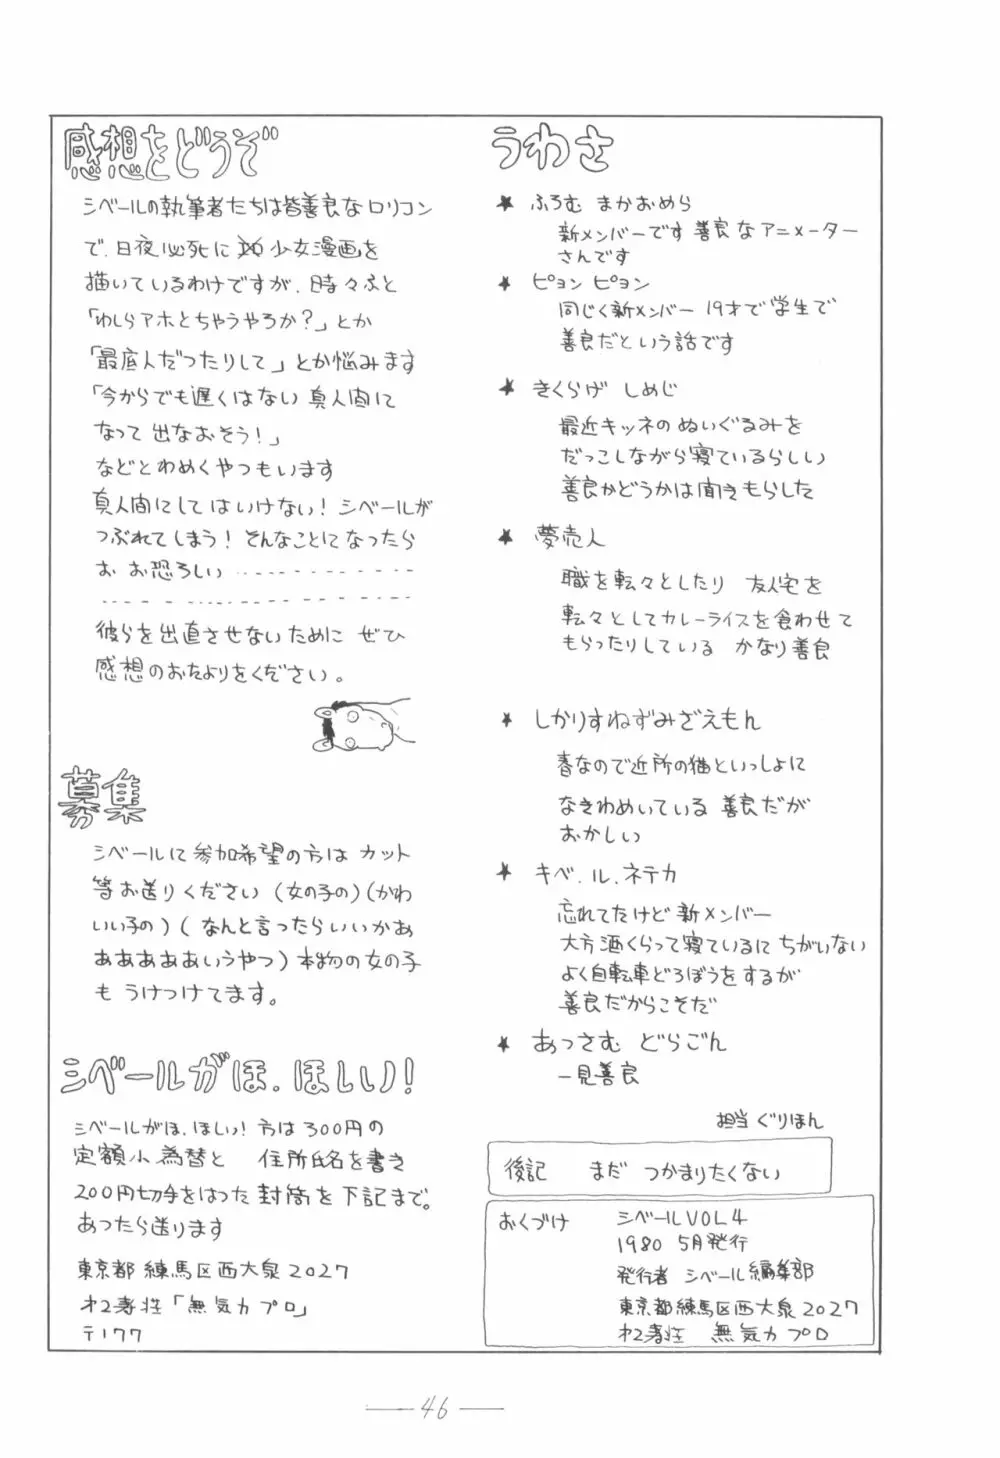 感想をどうぞ
シベールの執筆者たちは皆善良なロリコン
で、日夜必死に 少女漫画を
描いているわけですが、時々ふと
「わしらアホとちゃうやろか?」とか
「最底人だったりして」とか悩みます
「今からでも遅くはない 真人間に
なって 出なおそう!」
などとわめくやつもいます
真人間にしてはいけない! シベールが
つぶれてしまう! そんなことになったら
お お恐ろしい ‐‐‐‐‐‐‐‐‐‐‐‐
‐‐‐‐‐‐‐‐‐‐‐‐‐‐‐‐‐‐‐
彼らを出直させないために ぜひ
感想のおたよりをください。
募集
シベールに参加希望の方は カット
等お送りください (女の子の)(かわ
いい子の)(なんと言ったらいいかあ
あああああいうやつ)本物の女の子
も うけつけてます。
シベールがほ、ほしい!
シベールがほ、ほしい! 方は300円の
定額小為替と 住所氏名を書き
200円切手をはった封筒を下記まで。
あったら送ります
東京都練馬区西大泉2027
才2寿荘「無気力プロ」
〒177
うわさ
★ ふろむ まかおめら
新メンバーです 善良なアニメーター
さんです
★ ピョン ピョン
同じく新メンバー 19才で学生で
善良だという話です
★ きくらげ しめじ
最近キツネのぬいぐるみを
だっこしながら寝ているらしい
善良かどうかは聞きもらした
★ 夢売人
職を転々としたり 友人宅を
転々としてカレーライスを食わせて
もらったりしている かなり善良
★ しかりすねずみざえもん
春なので近所の猫といっしょに
なきわめいている 善良だが
おかしい
★ キベ.ル.ネテカ
忘れてたけど 新メンバー
大方酒くらって寝ているにちがいない
よく自転車どろぼうをするが
善良だからこそだ
★ あっさむ どらごん
一見善良
担当 ぐりほん
後記 まだ つかまりたくない
おくづけ シベールVOL4
1980 5月発行
発行者 シベール編集部
東京都練馬区西大泉2027
才2寿荘 無気力プロ
46